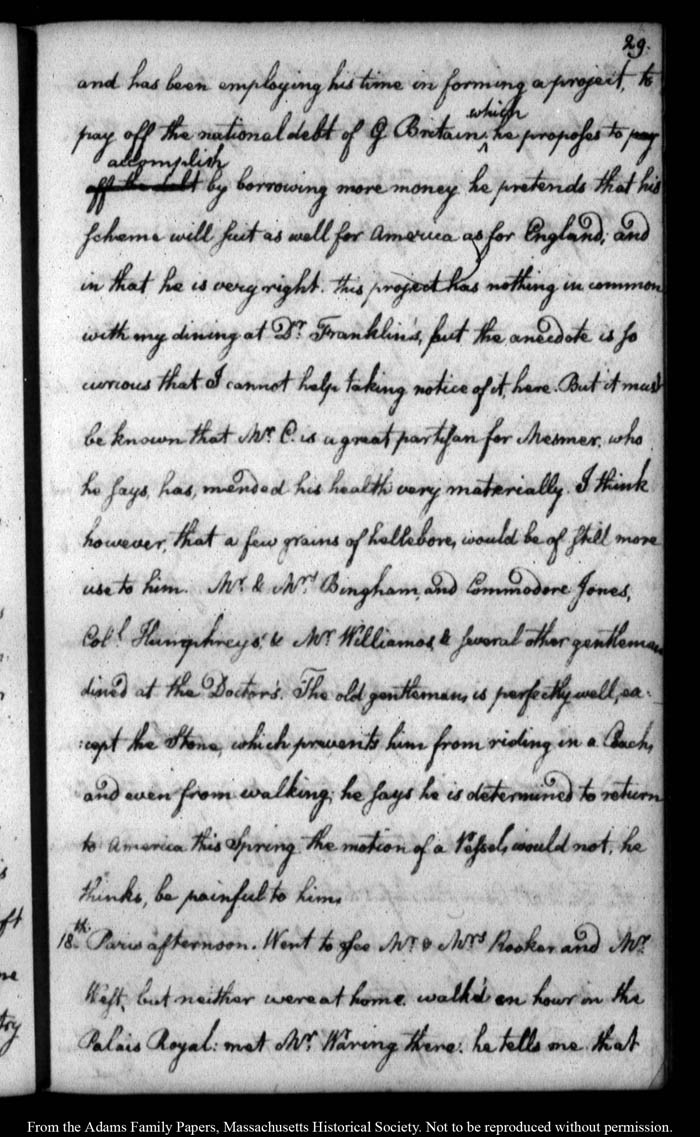 29.
and has been employing his time in forming a project, to
pay off the national debt of G Britain, which he proposes to pay
off the debt accomplish by borrowing more money he pretends that his
scheme will suit as well for America as for England; and
in that he is very right. this project has nothing in common
with my dining at Dr. Franklin's, but the anecdote is so
curious that I cannot help taking notice of it, here. But it must
be known that Mr. C. is a great partisan for Mesmer, who
he says, has, mended his health very materially. I think
however, that a few grains of hellebore, would be of still more
use to him. Mr. & Mrs. Bingham, and Commodore Jones,
Coll. Humphreys, & Mr. Williamos, & several other gentlemen
dined at the Doctor's. The old gentleman, is perfectly well, ex-
:cept the Stone, which prevents him from riding in a Coach,
and even from walking; he says he is determined to return
to America this Spring the motion of a Vessel, would not, he
thinks, be painful to him.
18th. Paris afternoon. Went to see Mr. & Mrs. Rooker and Mr.
West, but neither were at home. walk'd an hour in the
Palais Royal: met Mr. Waring there. he tells me that
ft
ne
try
From the Adams Family Papers, Massachusetts Historical Society. Not to be reproduced without permission.